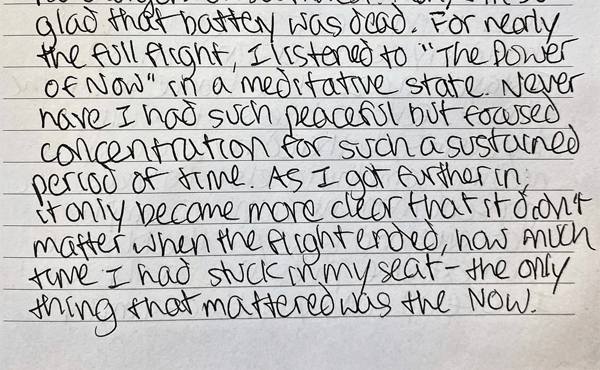 glad that battery was dead. For nearly
the full flight, I listened to "The Power
of Now" in a meditative state. Never
have I had such peaceful but focused
concentration for such a sustained
period of time. As I got further in,
it only became more clear that it didn't
matter when the flight ended, how much
time I had stuck in my seat - the only
thing that mattered was the Now.